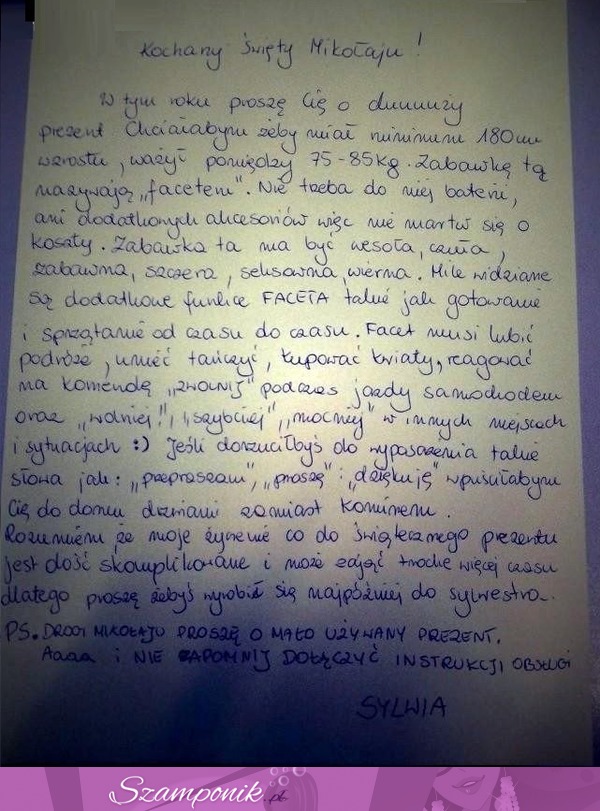 Kochany Święty Mikołaju!
W tym roku proszę Cię o duuuuży
prezent Chciałabym żeby miał minimum 180cm
wzrostu, ważył pomiędzy 75-85kg. Zabawkę tą
nazywają „facetem". Nie trzeba do niej baterii,
ani dodatkowych akcesoriów więc nie martw się o
koszty. Zabawka ta ma być wesoła, czuła,
zabawna, szczera, seksowna, wierna. Mile widziane
są dodatkowe funkcje FACETA takie jak gotowanie
i sprzątanie od czasu do czasu. Facet musi lubić
podróże, umieć tańczyć, kupować kwiaty, reagować
na komendę „zwolnij" podczas jazdy samochodem
oraz „wolniej!", „szybciej", „mocniej" w innych miejscach
i sytuacjach :) Jeśli dorzuciłbyś do wyposażenia takie
słowa jak: „przepraszam", „proszę" i „dziękuję" wpuściłabym
Cię do domu drzwiami zamiast kominem.
Rozumiem że moje życzenie co do świątecznego prezentu
jest dość skomplikowane i może zająć trochę więcej czasu
dlatego proszę żebyś wyrobił się najpóźniej do sylwestra..
PS. DROGI MIKOŁAJU PROSZĘ O MAŁO UŻYWANY PREZENT.
Aaaa i NIE ZAPOMNIJ DOŁĄCZYĆ INSTRUKCJI OBSŁUGI
SYLWIA
Szamponik.pl